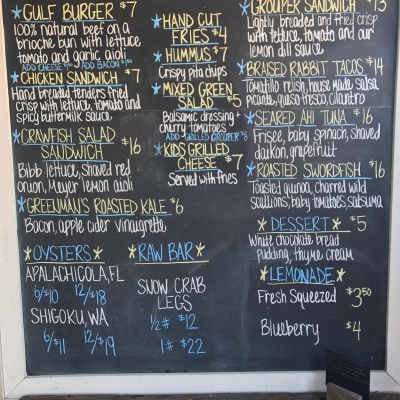 GULF BURGER $7
100% natural beef on a
brioche bun with lettuce
tomato and garlic aioli
ADD CHEESE ADD BACON
CHICKEN SANDWICH $7
Hand breaded tenders fried
crisp with lettuce, tomato and
spicy buttermilk sauce
CRAWFISH SALAD
SANDWICH $16
Bibb lettuce, shaved red
onion, Meyer lemon aioli
GREENMAN'S ROASTED KALE $6
Bacon, apple cider vinaigrette
OYSTERS
APALACHICOLA, FL
6/$10 12/$18
SHIGOKU, WA
6/$11 12/$19
HAND CUT
FRIES $4
HUMMUS $7
Crispy pita chips
MIXED GREEN
SALAD $5
Balsamic dressing +
cherry tomatoes
ADD GRILLED GROUPER $8
KIDS GRILLED
CHEESE $7
Served with fries
RAW BAR
SNOW CRAB
LEGS
1/2# $12
1# $22
GROUPER SANDWICH $13
Lightly breaded and fried crisp
with lettuce, tomato and our
lemon dill sauce
BRAISED RABBIT TACOS $14
Tomatillo relish, house made salsa
picante, queso fresco, cilantro
SEARED AHI TUNA $16
Frisee, baby spinach, shaved
daikon, grapefruit
ROASTED SWORDFISH $16
Toasted quinoa, charred wild
scallions, baby tomatoes, satsuma
DESSERT $5
White chocolate bread
pudding, thyme cream
LEMONADE
Fresh Squeezed $3.50
Blueberry $4